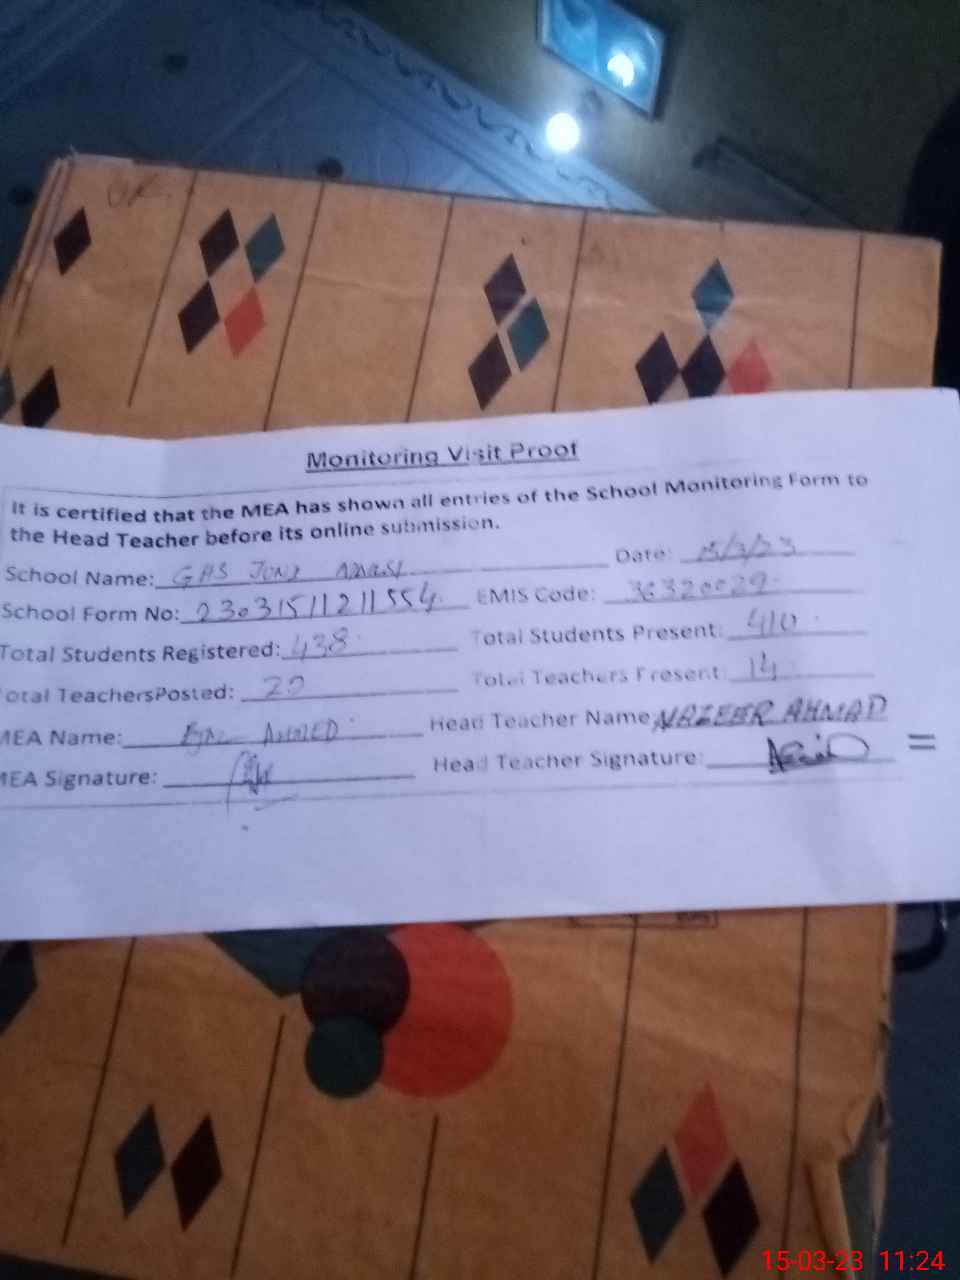 OK
Monitoring Visit Proof
It is certified that the MEA has shown all entries of the School Monitoring Form to
the Head Teacher before its online submission.
School Name: GHS Date: 15/3/23
School Form No: 23031511211554 EMIS Code: 36320029
Total Students Registered: 438 Total Students Present: 410
otal TeachersPosted: 20 Total Teachers Present: 14
MEA Name: AHMED Head Teacher Name NAZEER AHMAD
MEA Signature: Head Teacher Signature:
15-03-23 11:24